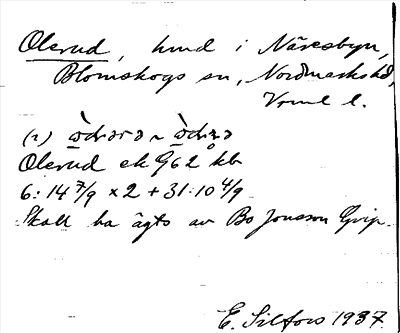 Olerud, hmd i Näresbyn,
Blomskogs sn, Nordmarks hd,
Vrml l.
(1)
Olerud ek 962 kb
6:14 7/9 x 2 + 31:10 4/9
Skall ha ägts av Bo Jonsson Grip.
E. Silfors 1937